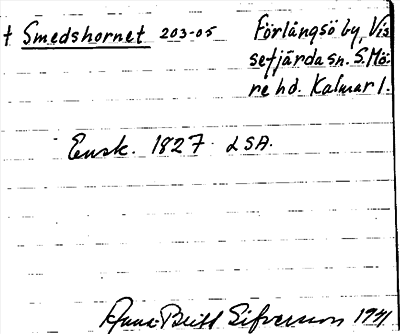 † Smedshornet 203-05 Förlångsö by, Vis
sefjärda sn. S. Mö
re hd. Kalmar l.
Ensk. 1827. LSA.
Anna-Britt Sifversson 1941.